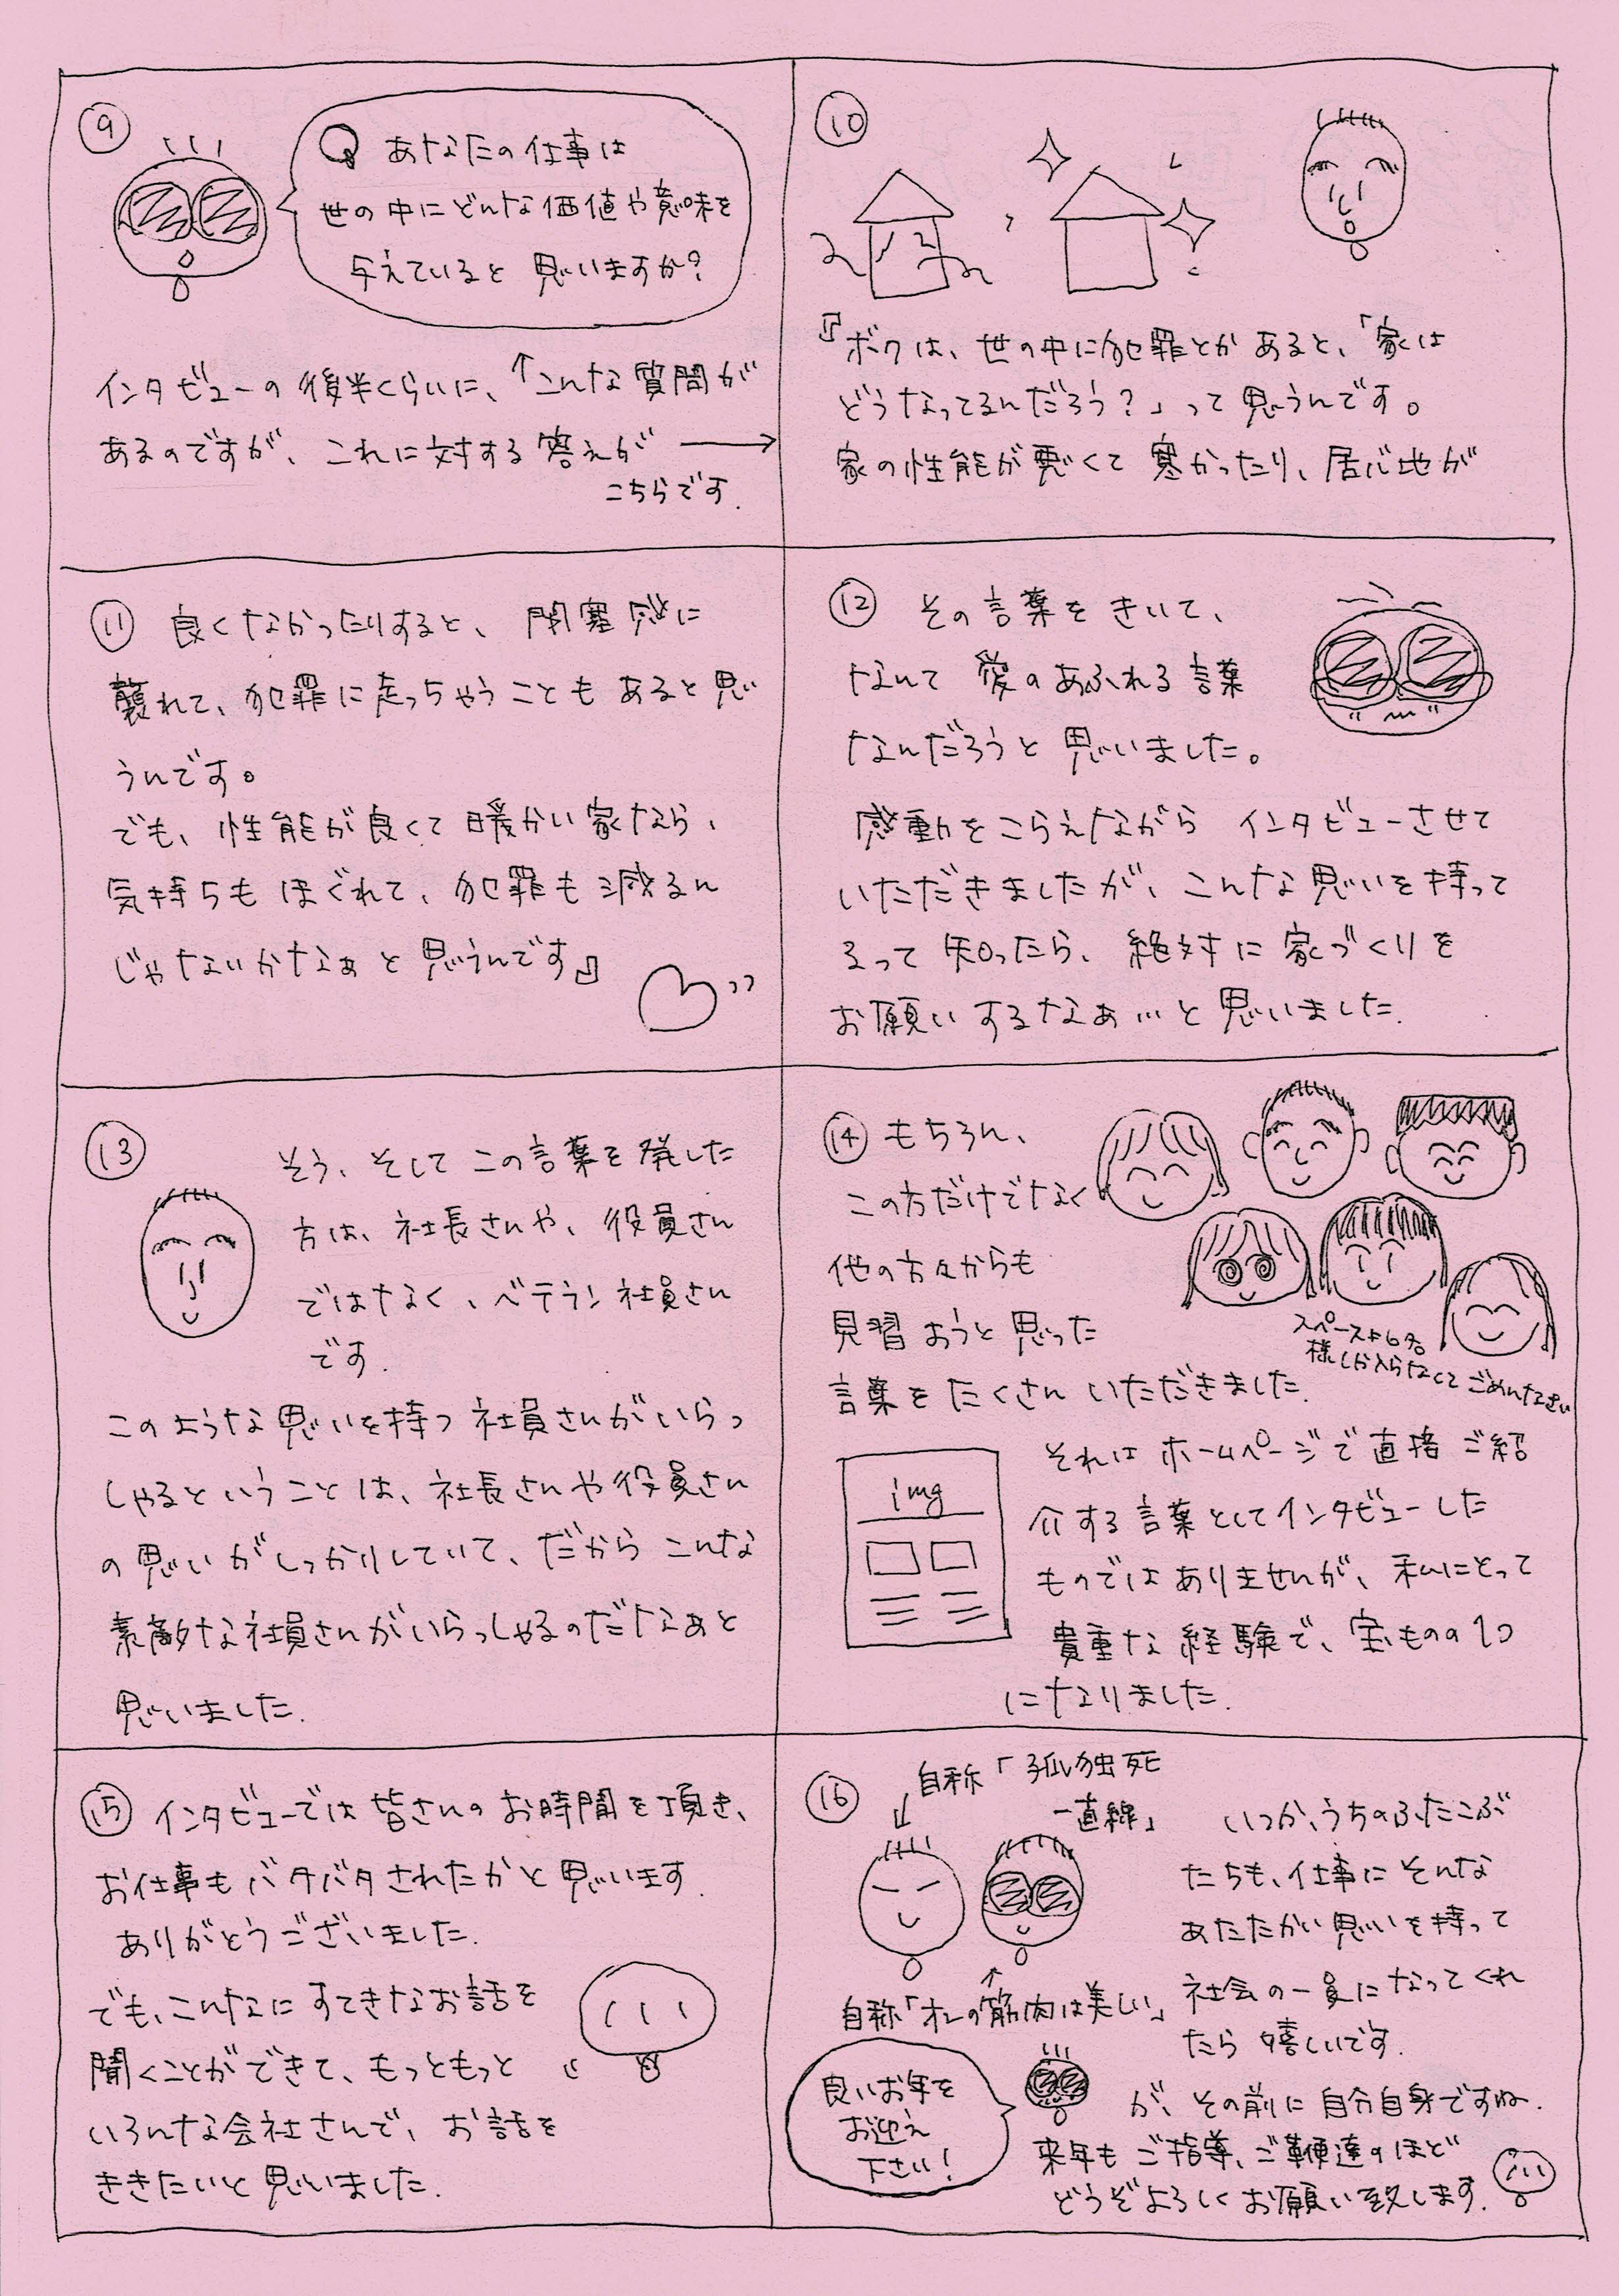 ⑨
Q あなたの仕事は
世の中にどんな価値や意味を
与えていると 思いますか?
インタビューの後半くらいに、↑こんな質問が
あるのですが、これに対する答えが →
こちらです.
⑩
『ボクは、世の中に犯罪とかあると、「家は
どうなってるんだろう?」って思うんです。
家の性能が悪くて寒かったり、居心地が
⑪ 良くなかったりすると、閉塞感に
襲れて、犯罪に走っちゃうこともあると思
うんです。
でも、性能が良くて暖かい家なら、
気持ちもほぐれて、犯罪も減るん
じゃないかなぁと思うんです』
⑫ その言葉をきいて、
なんて愛のあふれる言葉
なんだろうと思いました。
感動をこらえながら インタビューさせて
いただきましたが、こんな思いを持って
るって知ったら、絶対に家づくりを
お願いするなぁ…と思いました.
⑬
そう、そしてこの言葉を発した
方は、社長さんや、役員さん
ではなく、ベテラン社員さん
です.
このような思いを持つ社員さんがいらっ
しゃるということは、社長さんや役員さん
の思いがしっかりしていて、だからこんな
素敵な社員さんがいらっしゃるのだなぁと
思いました.
⑭ もちろん、
この方だけでなく
他の方々からも
見習おうと思った
言葉をたくさんいただきました.
スペース上6名
様しか入らなくてごめんなさい
img
それはホームページで直接ご紹
介する言葉としてインタビューした
ものではありませんが、私にとって
貴重な経験で、宝ものの1つ
になりました.
⑮ インタビューでは皆さんのお時間を頂き、
お仕事もバタバタされたかと思います.
ありがとうございました.
でも、こんなにすてきなお話を
聞くことができて、もっともっと
いろんな会社さんで、お話を
ききたいと思いました.
⑯
自称「孤独死
一直線」
自称「オレの筋肉は美しい」
いつか、うちのふたこぶ
たちも、仕事にそんな
あたたかい思いを持って
社会の一員になってくれ
たら嬉しいです.
が、その前に自分自身ですね.
来年もご指導、ご鞭達のほど
どうぞよろしくお願い致します.
良いお年を
お迎え
下さい!